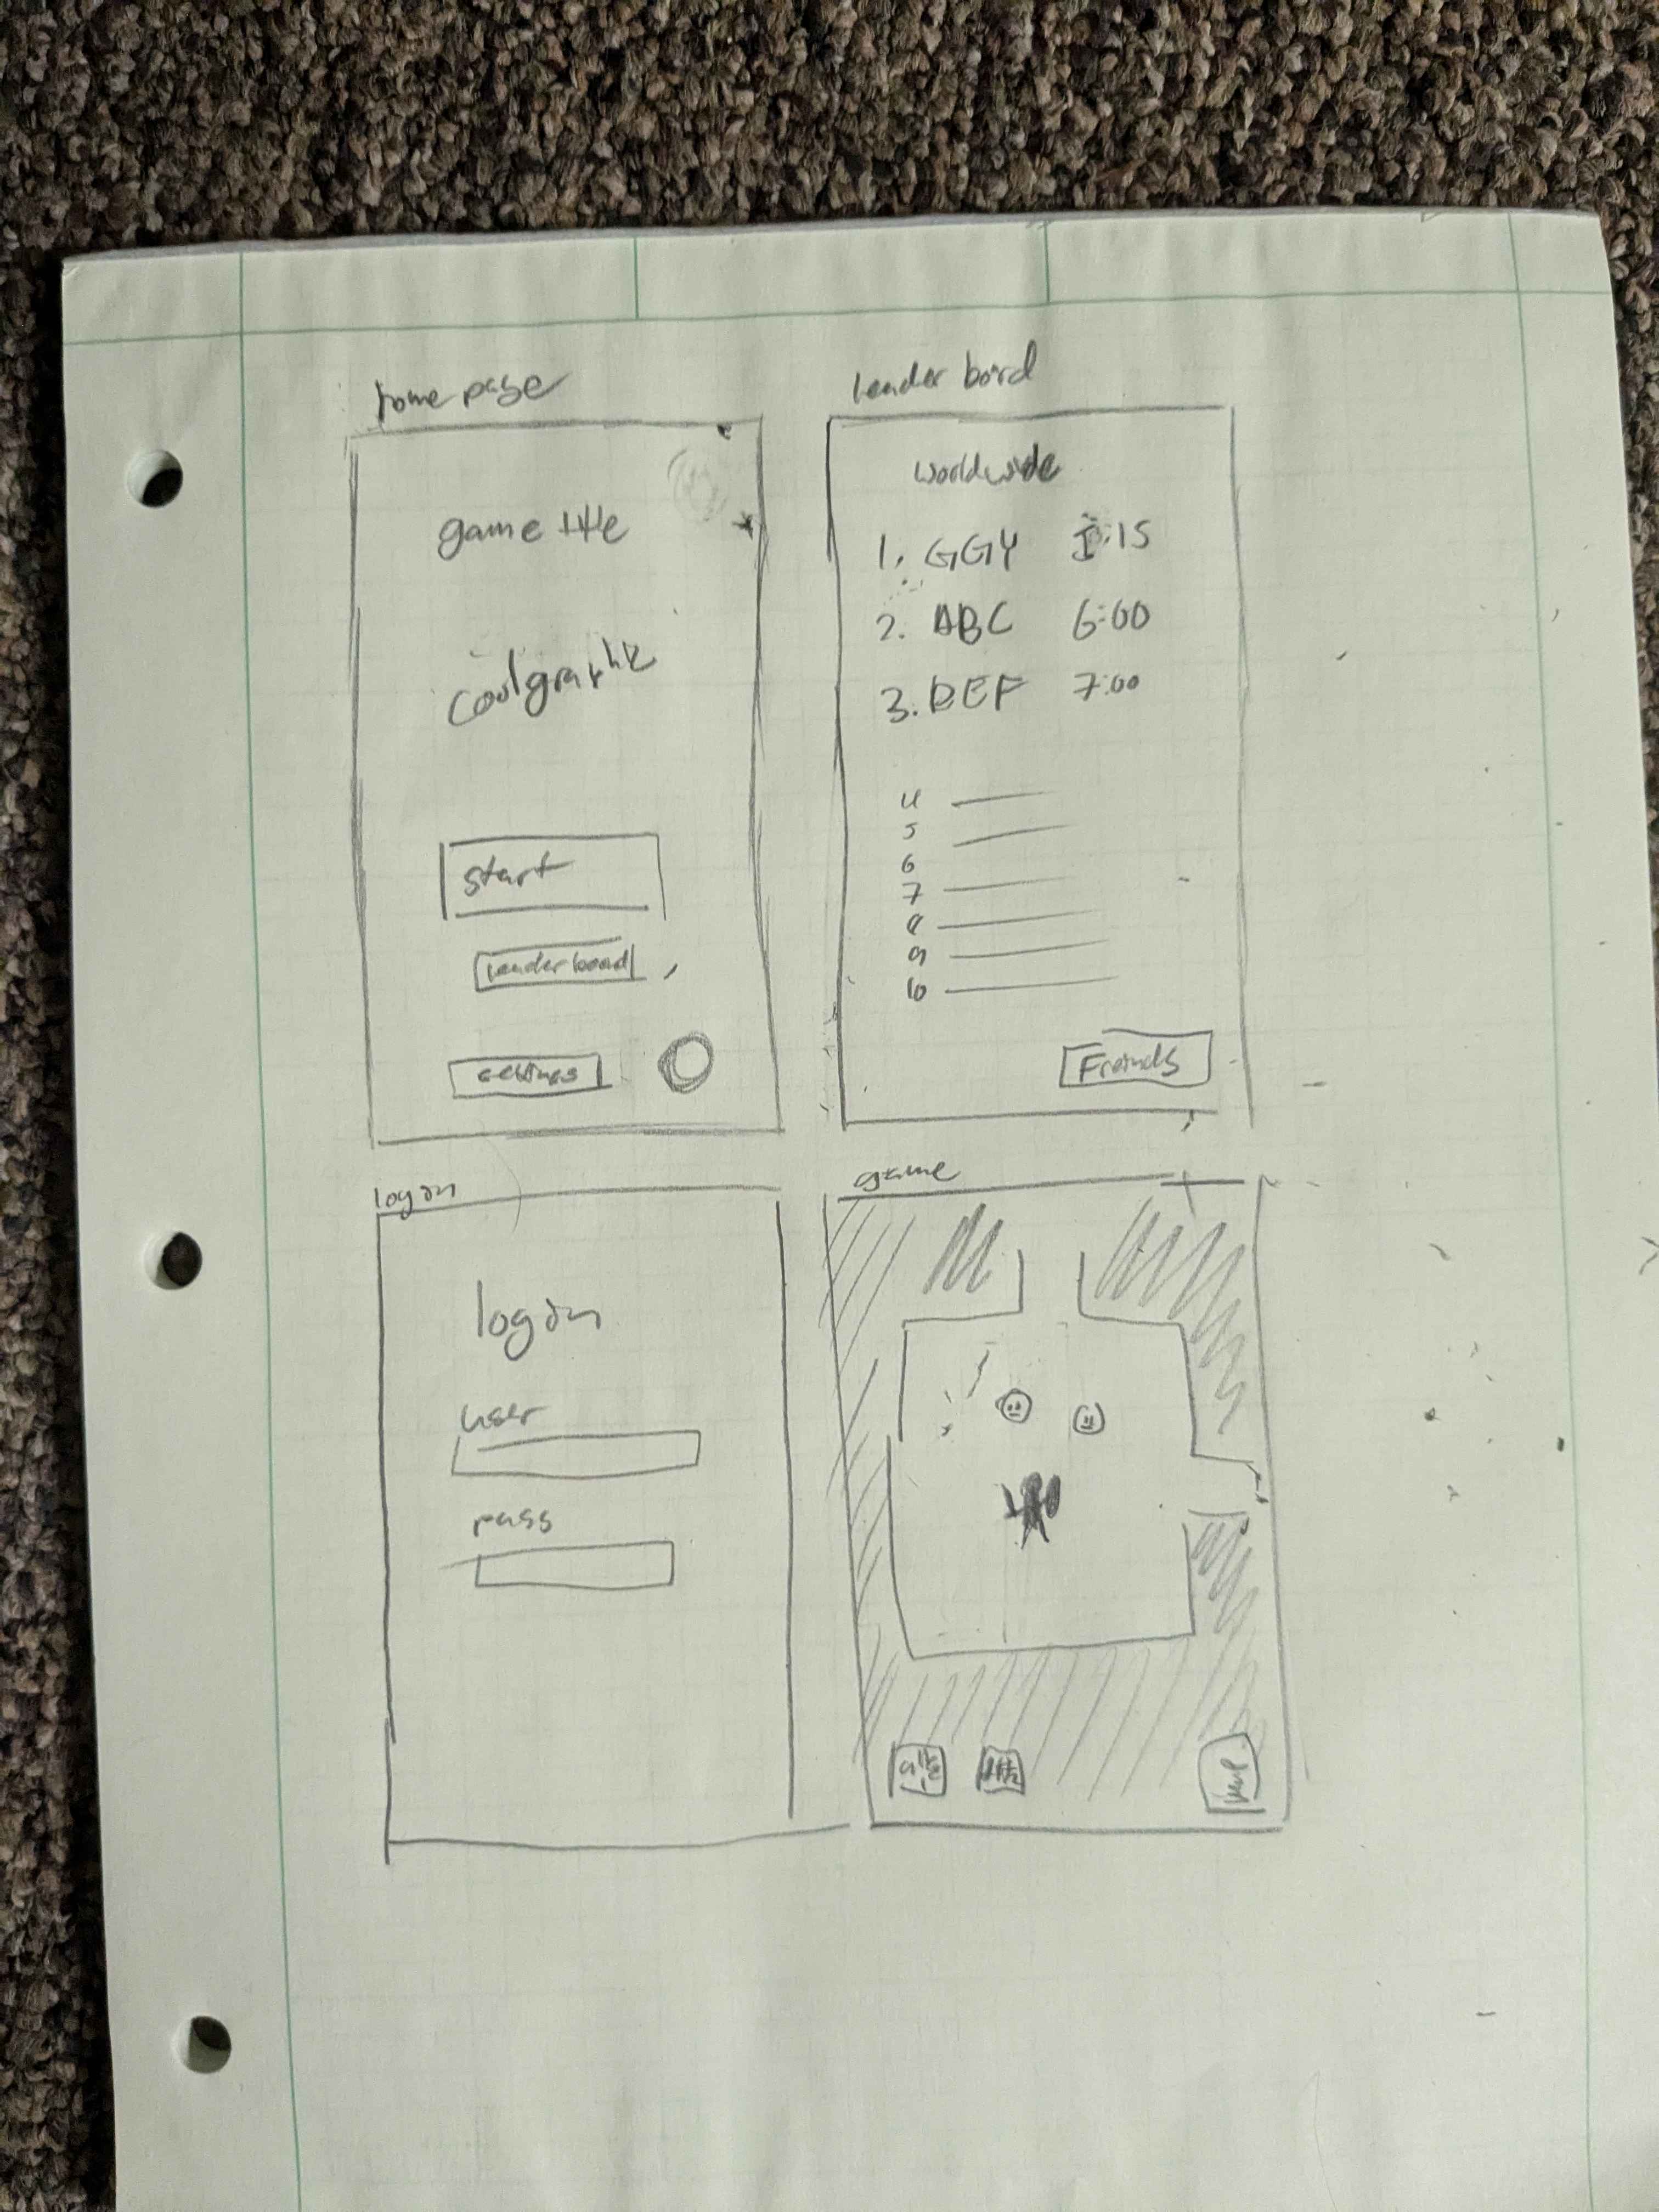 home page
game title
cool graphic
start
leader board
settings
leader bord
worldwide
1. GGY 5:15
2. ABC 6:00
3. DEF 7:00
4
5
6
7
8
9
10
Freinds
log in
log in
user
pass
game